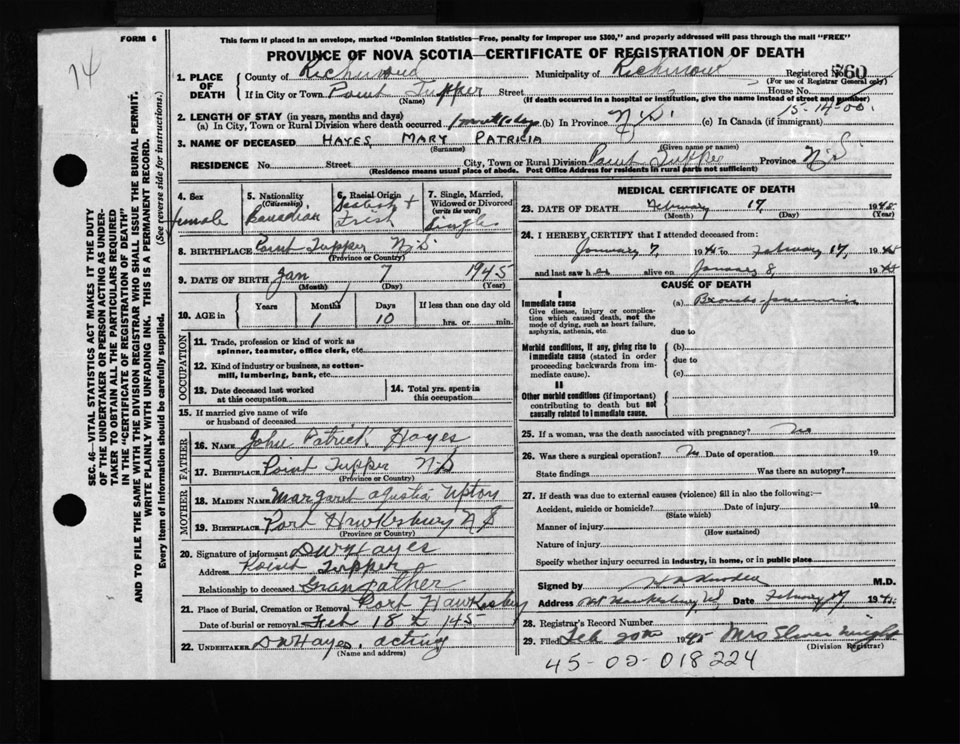 74
FORM 6
This form if placed in an envelope, marked "Dominion Statistics—Free, penalty for improper use $300," and properly addressed will pass through the mail "FREE"
PROVINCE OF NOVA SCOTIA—CERTIFICATE OF REGISTRATION OF DEATH
SEC. 46—VITAL STATISTICS ACT MAKES IT THE DUTY
OF THE UNDERTAKER OR PERSON ACTING AS UNDER-
TAKER TO OBTAIN ALL THE PARTICULARS REQUIRED
IN THE "CERTIFICATE OF REGISTRATION OF DEATH"
AND TO FILE THE SAME WITH THE DIVISION REGISTRAR WHO SHALL ISSUE THE BURIAL PERMIT.
WRITE PLAINLY WITH UNFADING INK. THIS IS A PERMANENT RECORD.
Every item of Information should be carefully supplied. (See reverse side for instructions.)
1. PLACE OF DEATH County of Richmond Municipality of Richmond Registered No. 760
(For use of Registrar General only)
If in City or Town Point Tupper Street House No.
(Name) (If death occurred in a hospital or institution, give the name instead of street and number)
15-14-00.
2. LENGTH OF STAY (in years, months and days)
(a) In City, Town or Rural Division where death occurred (b) In Province N.S. (c) In Canada (if immigrant)
3. NAME OF DECEASED HAYES, MARY PATRICIA
(Surname) (Given name or names)
RESIDENCE No. Street City, Town or Rural Division Point Tupper Province N.S.
(Residence means usual place of abode. Post Office Address for residents in rural parts not sufficient)
4. Sex
female
5. Nationality
(Citizenship)
Canadian
6. Racial Origin
Irish
7. Single, Married,
Widowed or Divorced
(write the word)
Single
8. BIRTHPLACE Point Tupper N.S.
(Province or Country)
9. DATE OF BIRTH Jan 7 1945
(Month) (Day) (Year)
10. AGE in Years Months Days If less than one day old
1 10 hrs. or min.
OCCUPATION
11. Trade, profession or kind of work as
spinner, teamster, office clerk, etc.
12. Kind of industry or business, as cotton-
mill, lumbering, bank, etc.
13. Date deceased last worked
at this occupation
14. Total yrs. spent in
this occupation
15. If married give name of wife
or husband of deceased
FATHER
16. Name John Patrick Hayes
17. Birthplace Point Tupper N.S
(Province or Country)
MOTHER
18. Maiden Name Margaret Upton
19. Birthplace Port Hawkesbury N S
(Province or Country)
20. Signature of informant D W Hayes
Address Point Tupper
Relationship to deceased Granfather
21. Place of Burial, Cremation or Removal Port Hawkesbury
Date of burial or removal Feb 18 145
22. UNDERTAKER D W Hayes, acting
(Name and address)
MEDICAL CERTIFICATE OF DEATH
23. DATE OF DEATH February 17, 1945
(Month) (Day) (Year)
24. I HEREBY CERTIFY that I attended deceased from:
January 7, 1945 to February 17, 1945
and last saw her alive on January 8, 1945
CAUSE OF DEATH
I
Immediate cause
Give disease, injury or complica-
tion which caused death, not the
mode of dying, such as heart failure,
asphyxia, asthenia, etc.
(a) Broncho-pneumonia
due to
Morbid conditions, if any, giving rise to
immediate cause (stated in order
proceeding backwards from im-
mediate cause).
(b)
due to
(c)
II
Other morbid conditions (if important)
contributing to death but not
causally related to immediate cause.
25. If a woman, was the death associated with pregnancy? No
26. Was there a surgical operation? No Date of operation 19
State findings Was there an autopsy?
27. If death was due to external causes (violence) fill in also the following:—
Accident, suicide or homicide? Date of injury 19
(State which)
Manner of injury
(How sustained)
Nature of injury
Specify whether injury occurred in industry, in home, or in public place
Signed by M.D.
Address Pt Hawkesbury NS Date February 17 1945
28. Registrar's Record Number
29. Filed Feb 20th 1945 Mrs
(Division Registrar)
45-02-018224